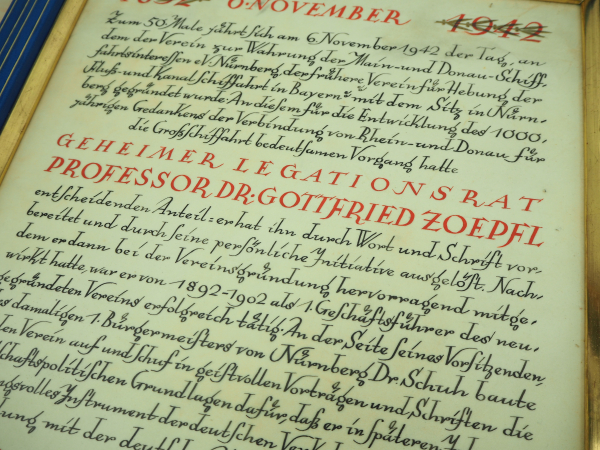 1892 6. NOVEMBER 1942
Zum 50. Male jährt sich am 6. November 1942 der Tag, an
dem der Verein zur Wahrung der Main- und Donau-Schiff-
fahrtsinteressen e.V. Nürnberg, der frühere Verein für Hebung der
Fluß- und Kanalschiffahrt in Bayern, mit dem Sitz in Nürn-
berg gegründet wurde. An diesem für die Entwicklung des 1000-
jährigen Gedankens der Verbindung von Rhein- und Donau für
die Großschiffahrt bedeutsamen Vorgang hatte
GEHEIMER LEGATIONSRAT
PROFESSOR DR. GOTTFRIED ZOEPFL
entscheidenden Anteil: er hat ihn durch Wort und Schrift vor-
bereitet und durch seine persönliche Initiative ausgelöst. Nach-
dem er dann bei der Vereinsgründung hervorragend mitge-
wirkt hatte, war er von 1892-1902 als 1. Geschäftsführer des neu-
gegründeten Vereins erfolgreich tätig. An der Seite seines Vorsitzenden,
damaligen 1. Bürgermeisters von Nürnberg Dr. Schuh baute
den Verein auf und schuf in geistvollen Vorträgen und Schriften die
schaftspolitischen Grundlagen dafür, daß er in späteren
volles Instrument der deutschen
mit der